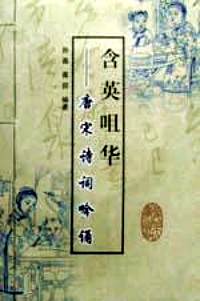 含英咀华
——唐宋诗词吟诵
编著